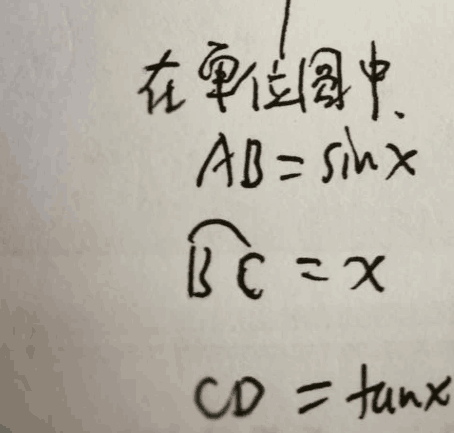 在单位圆中、
AB = sinx
⌒BC = x
CD = tanx